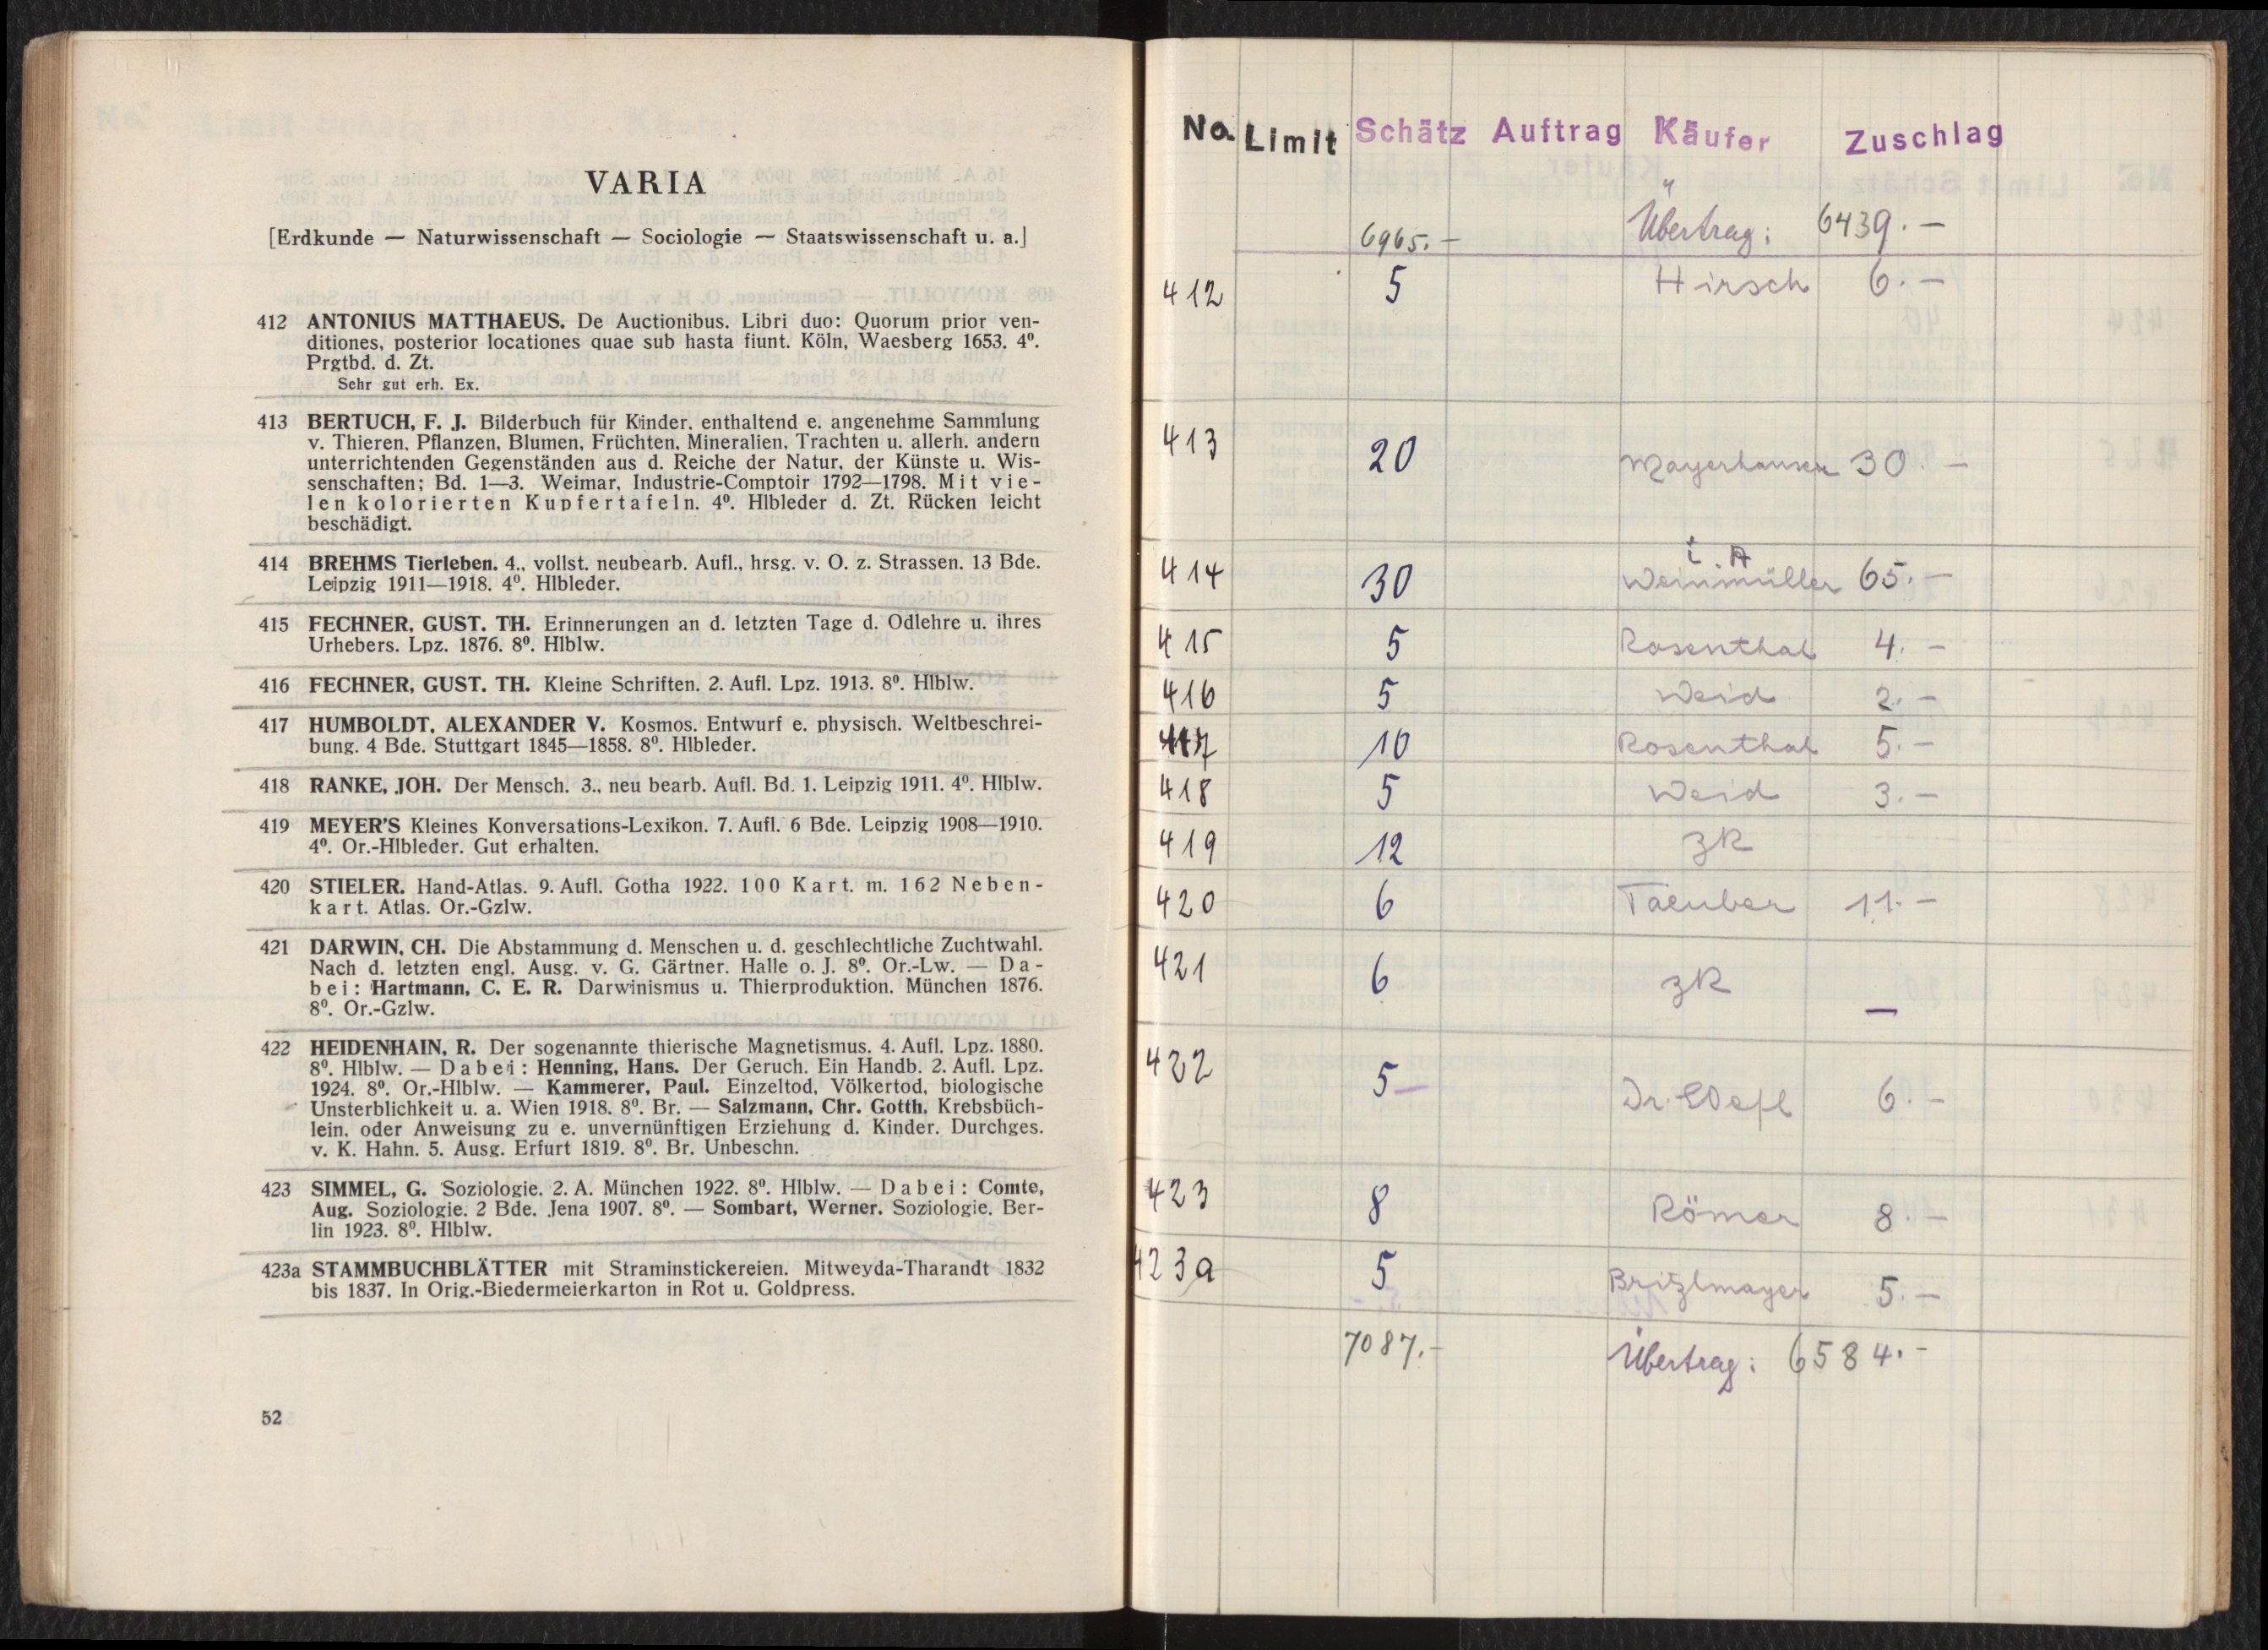 VARIA
[Erdkunde — Naturwissenschaft — Sociologie — Staatswissenschaft u. a.]
412 ANTONIUS MATTHAEUS. De Auctionibus. Libri duo: Quorum prior ven-
ditiones, posterior locationes quae sub hasta fiunt. Köln, Waesberg 1653. 4⁰.
Prgtbd. d. Zt.
Sehr gut erh. Ex.
413 BERTUCH, F. J. Bilderbuch für Kinder. enthaltend e. angenehme Sammlung
v. Thieren, Pflanzen, Blumen, Früchten, Mineralien, Trachten u. allerh. andern
unterrichtenden Gegenständen aus d. Reiche der Natur, der Künste u. Wis-
senschaften; Bd. 1—3. Weimar, Industrie-Comptoir 1792—1798. Mit vie-
len kolorierten Kupfertafeln. 4⁰. Hlbleder d. Zt. Rücken leicht
beschädigt.
414 BREHMS Tierleben. 4., vollst. neubearb. Aufl., hrsg. v. O. z. Strassen. 13 Bde.
Leipzig 1911—1918. 4⁰. Hlbleder.
415 FECHNER, GUST. TH. Erinnerungen an d. letzten Tage d. Odlehre u. ihres
Urhebers. Lpz. 1876. 8⁰. Hlblw.
416 FECHNER, GUST. TH. Kleine Schriften. 2. Aufl. Lpz. 1913. 8⁰. Hlblw.
417 HUMBOLDT, ALEXANDER V. Kosmos. Entwurf e. physisch. Weltbeschrei-
bung. 4 Bde. Stuttgart 1845—1858. 8⁰. Hlbleder.
418 RANKE, JOH. Der Mensch. 3., neu bearb. Aufl. Bd. 1. Leipzig 1911. 4⁰. Hlblw.
419 MEYER'S Kleines Konversations-Lexikon. 7. Aufl. 6 Bde. Leipzig 1908—1910.
4⁰. Or.-Hlbleder. Gut erhalten.
420 STIELER. Hand-Atlas. 9. Aufl. Gotha 1922. 100 Kart. m. 162 Neben-
kart. Atlas. Or.-Gzlw.
421 DARWIN, CH. Die Abstammung d. Menschen u. d. geschlechtliche Zuchtwahl.
Nach d. letzten engl. Ausg. v. G. Gärtner. Halle o. J. 8⁰. Or.-Lw. — Da-
bei: Hartmann, C. E. R. Darwinismus u. Thierproduktion. München 1876.
8⁰. Or.-Gzlw.
422 HEIDENHAIN, R. Der sogenannte thierische Magnetismus. 4. Aufl. Lpz. 1880.
8⁰. Hlblw. — Dabei: Henning, Hans. Der Geruch. Ein Handb. 2. Aufl. Lpz.
1924. 8⁰. Or.-Hlblw. — Kammerer, Paul. Einzeltod, Völkertod, biologische
Unsterblichkeit u. a. Wien 1918. 8⁰. Br. — Salzmann, Chr. Gotth. Krebsbüch-
lein, oder Anweisung zu e. unvernünftigen Erziehung d. Kinder. Durchges.
v. K. Hahn. 5. Ausg. Erfurt 1819. 8⁰. Br. Unbeschn.
423 SIMMEL, G. Soziologie. 2. A. München 1922. 8⁰. Hlblw. — Dabei: Comte,
Aug. Soziologie. 2 Bde. Jena 1907. 8⁰. — Sombart, Werner. Soziologie. Ber-
lin 1923. 8⁰. Hlblw.
423a STAMMBUCHBLÄTTER mit Straminstickereien. Mitweyda-Tharandt 1832
bis 1837. In Orig.-Biedermeierkarton in Rot u. Goldpress.
52
No. Limit Schätz Auftrag Käufer Zuschlag
6965.— Übertrag: 6439.—
412 5 Hirsch 6.—
413 20 Mayerhausen 30.—
i. A
414 30 Weinmüller 65.—
415 5 Rosenthal 4.—
416 5 Weid 2.—
417 10 Rosenthal 5.—
418 5 Weid 3.—
419 12 zR
420 6 Taeuber 11.—
421 6 zR —
422 5— Dr. 6.—
423 8 Römer 8.—
423a 5 Britzlmayer 5.—
7087.— Übertrag: 6584.—